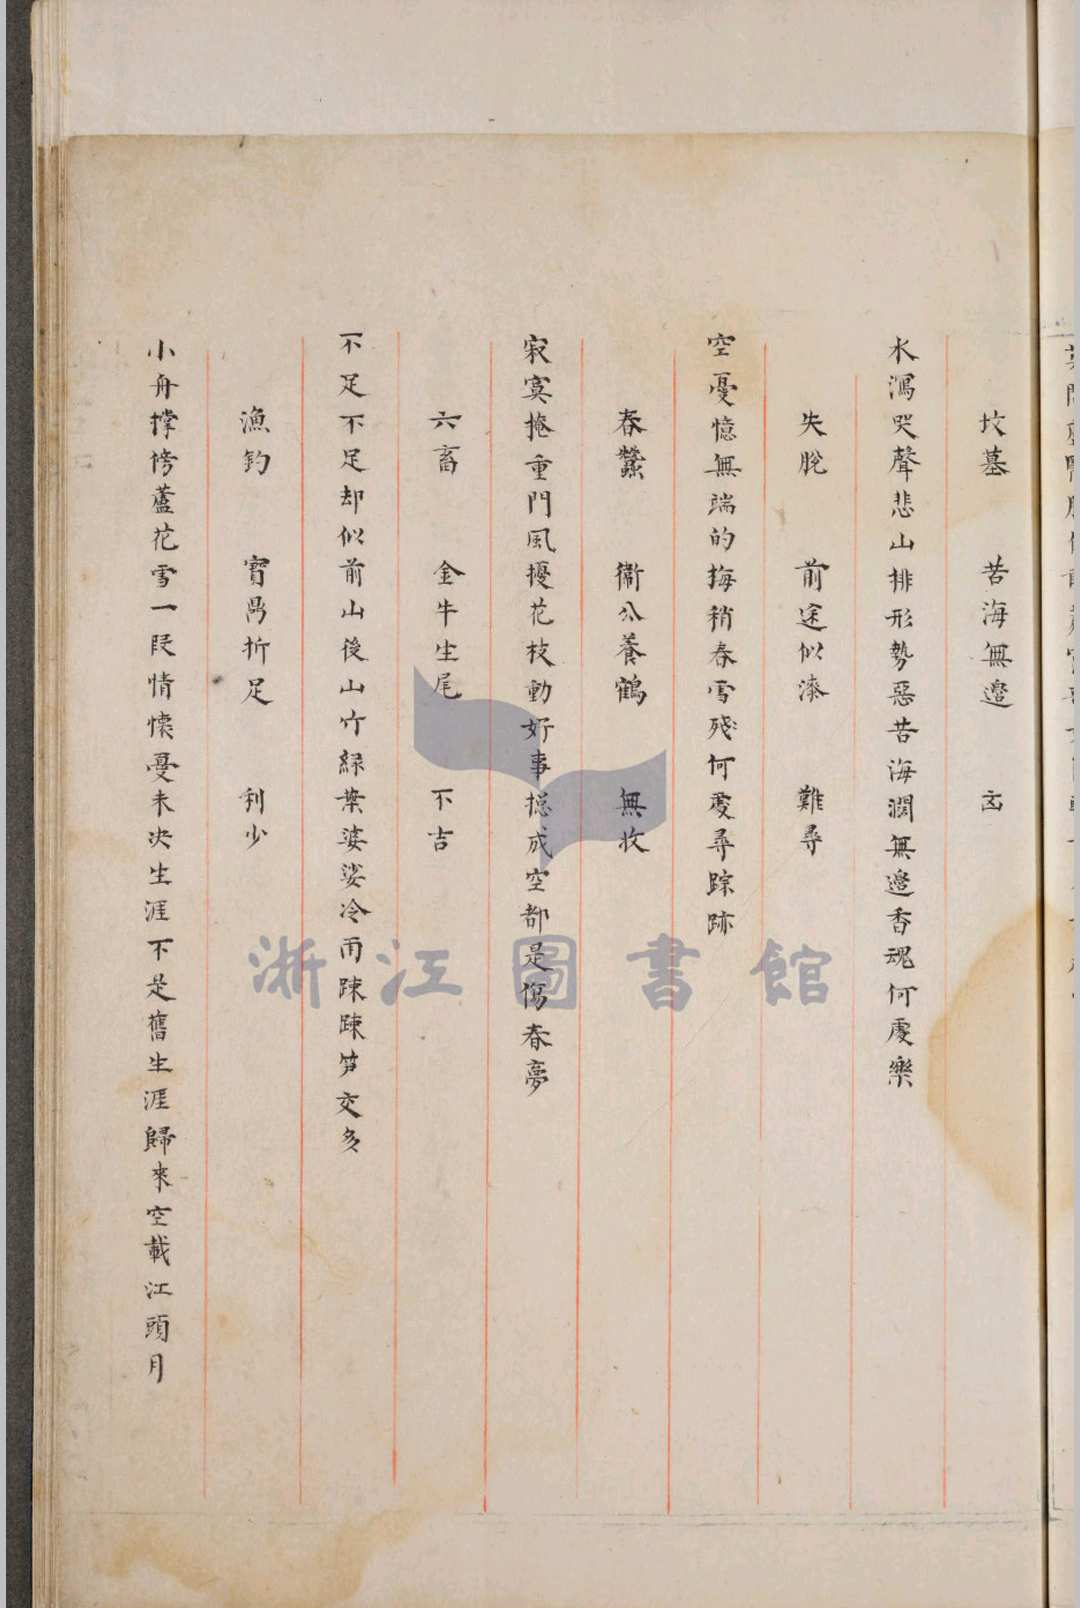 坟墓　苦海無邊　凶
水瀉哭聲悲山排形勢惡苦海濶無邊香魂何處樂
失脫　前途似漆　難尋
空憂憶無端的梅稍春雪殘何處尋踪跡
春蠶　衞公養鶴　無收
寂寞掩重門風擾花枝動好事摠成空都是傷春夢
六畜　金牛生尾　不吉
不足不足却似前山後山竹緑葉婆娑冷雨踈踈笋交多
漁釣　寳鼎折足　利少
小舟撑傍蘆花雪一段情懐憂未决生涯不是舊生涯歸來空載江頭月
浙江圖書館